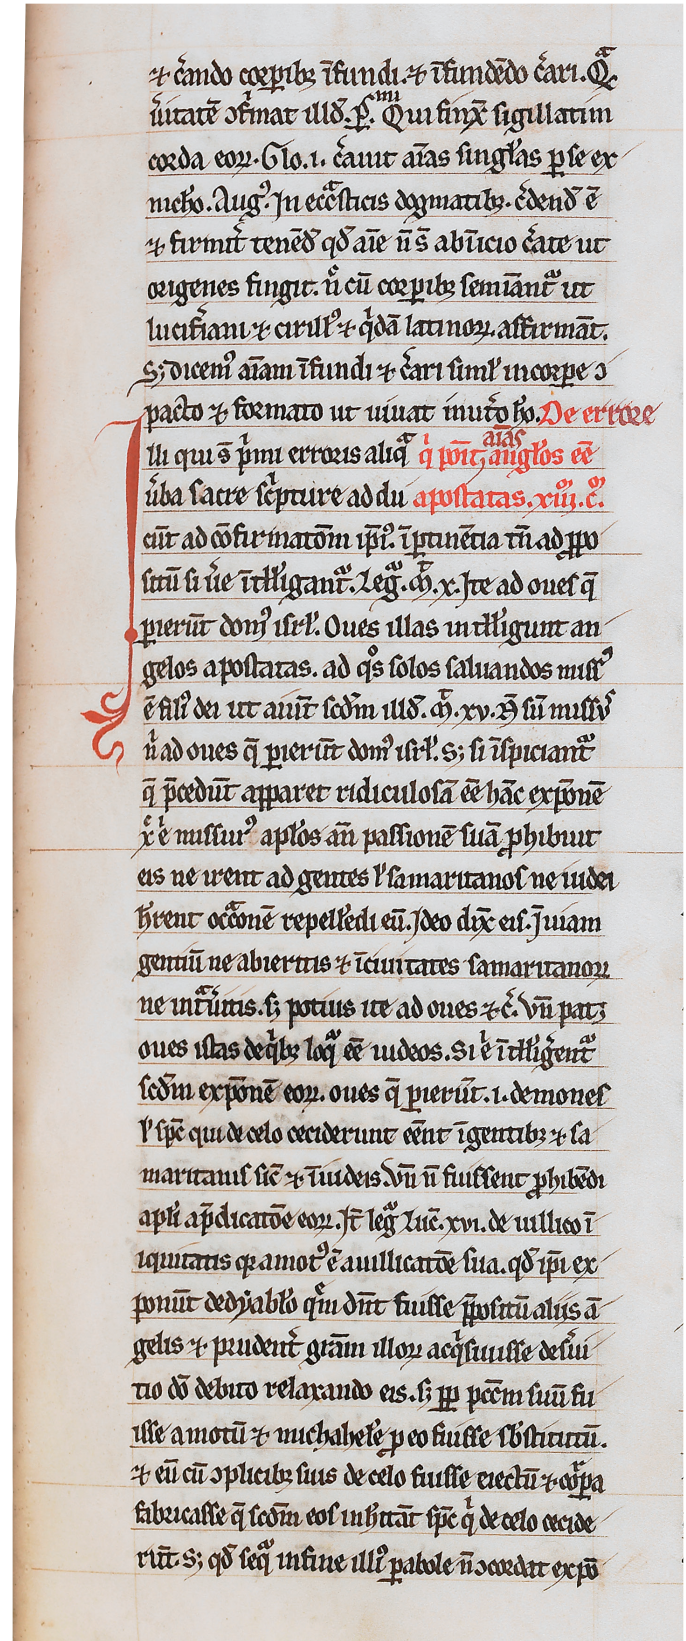 ⁊ c̄ando corꝑibꝫ īfundi. ⁊ īfundēdo c̄ari. Qͣ
ū̓itatē ↄf̓mat illđ. P̄. Qui finx̄ sigillatim
corda eoꝝ. Glo. i. c̄auit aīas singl̓as ꝑ se ex
nicħo. Augꝰ. In ecc̄asticis dogmatibꝫ. c̓dend̄ ē
⁊ firmit̓ tenēd̄ qđ aīe n̄ s̄ ab inicio c̄ate ut
origenes fingit. n̄ cū corꝑibꝫ semīant̄ ut
lucif̓iani ⁊ cirillꝰ ⁊ q̓dā latinoꝝ affirmāt.
Sꝫ dicemꝰ aīam īfundi ⁊ c̄ari simł in corpe ↄ
pacto ⁊ formato ut uiuat in ut̓o ho. De errore
lli qui s̄ p̓mi erroris aliqͣ q̓ pōit aīas angl̓os eē
ū̓ba sacre sc̓pture ad du apostatas. xiii. c̓.
cūt ad cōfirmatōm ip̄iꝰ. īꝑtinētia tn̄ ad ꝓpo
sitū si ūe ītelligant̄. Leg̃. M̃. x. Ite ad oues q̄
ꝑierūt domꝰ isrł. Oues illas intelligunt an
gelos apostatas. ad qͦs solos saluandos missꝰ
ē filiꝰ dei ut aiūt scd̄m illđ. M̃. xv. Nō sū missꝰ
n̓ ad oues q̄ ꝑierūt domꝰ isrł. Sꝫ si īspiciant̄
q̄ p̄cedūt apparet ridiculosā eē hāc expōnē
x̄ e̓ missurꝰ apl̓os an̄ passionē suā ꝓhibuit
eis ne irent ad gentes ł samaritanos ne iudei
ħrent occōnē repellēdi eū. Ideo dix̄ eis. Ī uiam
gentiū ne abieritis ⁊ īciuitates samaritanoꝝ
ne int̃ū̓itis. sꝫ potius ite ad oues ⁊ c̓. Vn̄ patꝫ
oues istas de q̓bꝫ loqͬ eē iudeos. Si e̓ ītelligent̄
scd̄m expōnē eoꝝ. oues q̄ ꝑierūt. i. demones
ł sp̄c qui de celo ceciderunt eēnt īgentibꝫ ⁊ sa
maritanis sic̄ ⁊ īiudeis. Vn̄ n̄ fuissent ꝓhibēdi
apł̓i a p̄dicatōe eoꝝ. It̄ leg̃ Luc̄. xvi. de uillico ī
iquitatis q̄ amotꝰ ē a uillicatōe sua. qđ ip̄i ex
ponūt de dyabl̓o q̄m dn̄t fuisse p̄positū aliis ā
gelis ⁊ prudent̓ grām illoꝝ acq̓siuisse de sū̓i
tio dō debito relaxando eis. sꝫ ꝓp̄ pcc̄m suū fu
isse amotū ⁊ michahel̓e ꝑ eo fuisse sb̄stitutū.
⁊ eū cū ↄplicibꝫ suis de celo fuisse eiectū ⁊ cor̄pa
fabricasse q̄ scd̄m eos inhītāt sp̄c q̓ de celo cecide
rūt. Sꝫ qđ seqͬ in fine illiꝰ ꝑabole n̄ ↄcordat expō